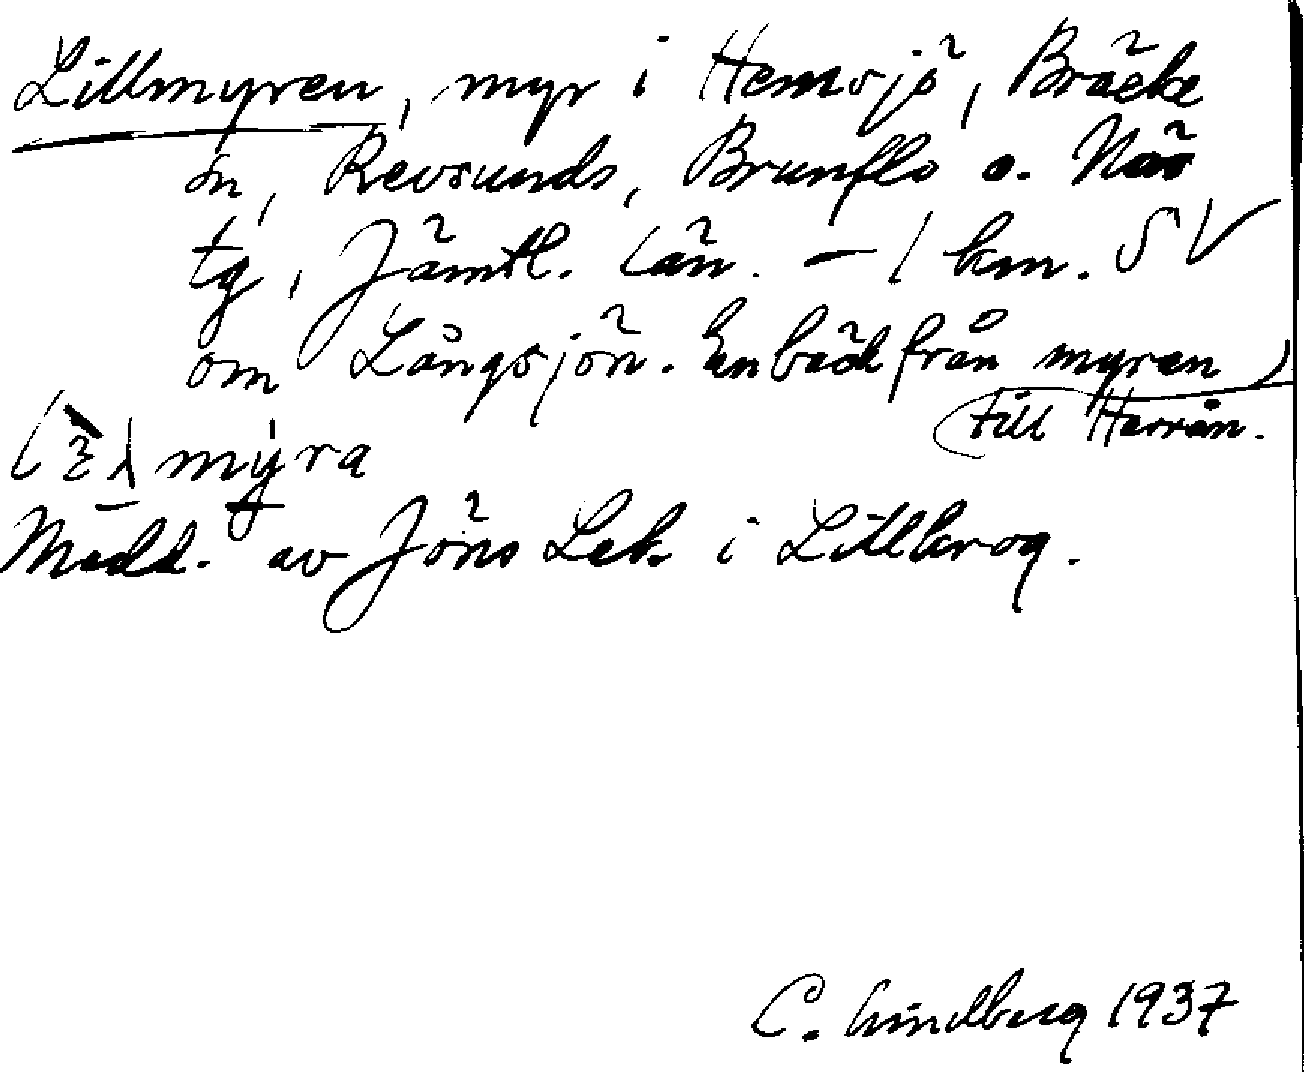 Lillmyren, myr i Hemsjö, Bräcke
sn, Revsunds, Brunflo o. Näs
tg, Jämtl. län. – 1 km. SV
om Långsjön. En bäck från myren
till Herrån.
mýra
Medd. av Jöns Lek i Lillkrog.
C. Lindberg 1937